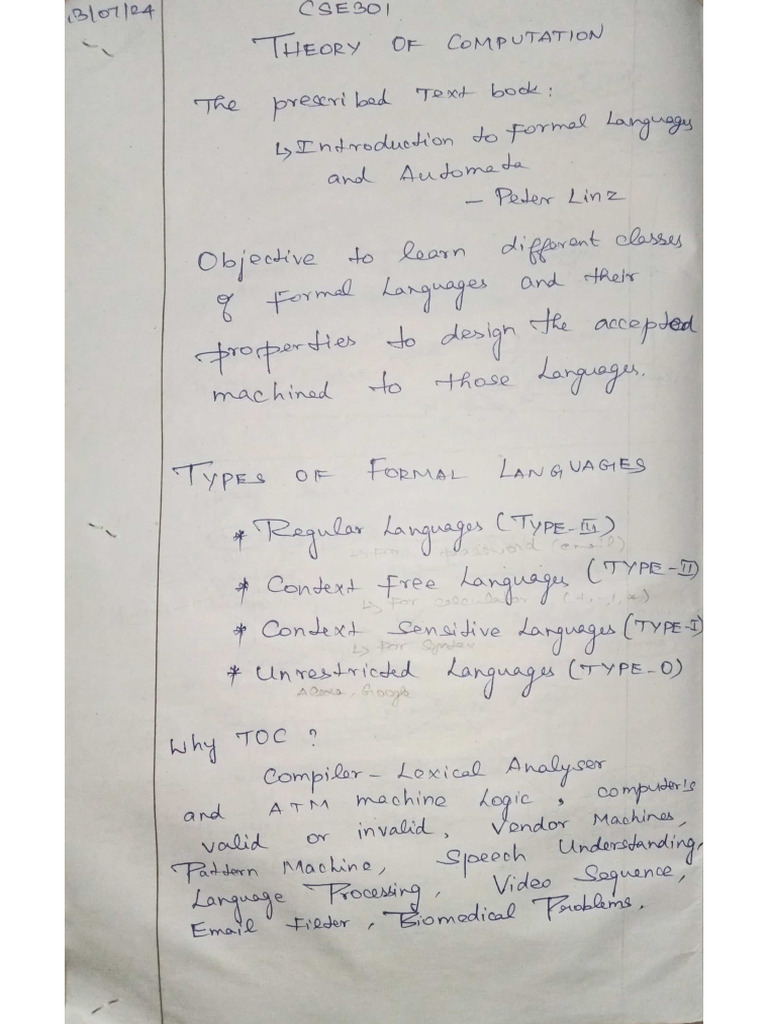 13/07/24
CSE301
THEORY OF COMPUTATION
The prescribed Text book:
↳ Introduction to Formal Languages
and Automata
- Peter Linz
Objective to learn different classes
of Formal Languages and their
properties to design the accepted
machined to those Languages.
TYPES OF FORMAL LANGUAGES
* Regular Languages (TYPE-III)
password (email)
* Context Free Languages (TYPE-II)
↳ For calculator
* Context Sensitive Languages (TYPE-I)
↳ For Syntax
* Unrestricted Languages (TYPE-0)
Alexa, Google
Why TOC ?
Compiler - Lexical Analyser
and ATM machine Logic, computer's
valid or invalid, Vendor Machines,
Pattern Machine, Speech Understanding,
Language Processing, Video Sequence,
Email Filter, Biomedical Problems.